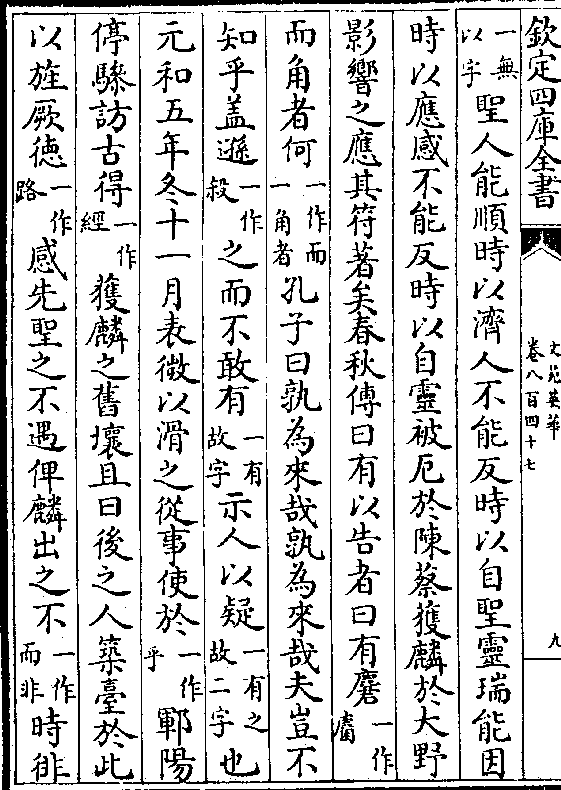 欽定四庫全書
文苑英華
卷八百四十七
九
一無以字聖人能順時以濟人不能反時以自聖靈瑞能因
時以應感不能反時以自靈被厄於陳蔡獲麟於大野
影響之應其符著矣春秋傳曰有以告者曰有麏一作麕
而角者何一作而一角者孔子曰孰為來哉孰為來哉夫豈不
知乎盖遜一作殺之而不敢有一有故字示人以疑一有之故二字也
元和五年冬十一月表微以滑之從事使於一作乎鄆陽
停驂訪古得一作經獲麟之舊壤且曰後之人築臺於此
以旌厥徳一作路感先聖之不遇俾麟出之不一作而非時徘